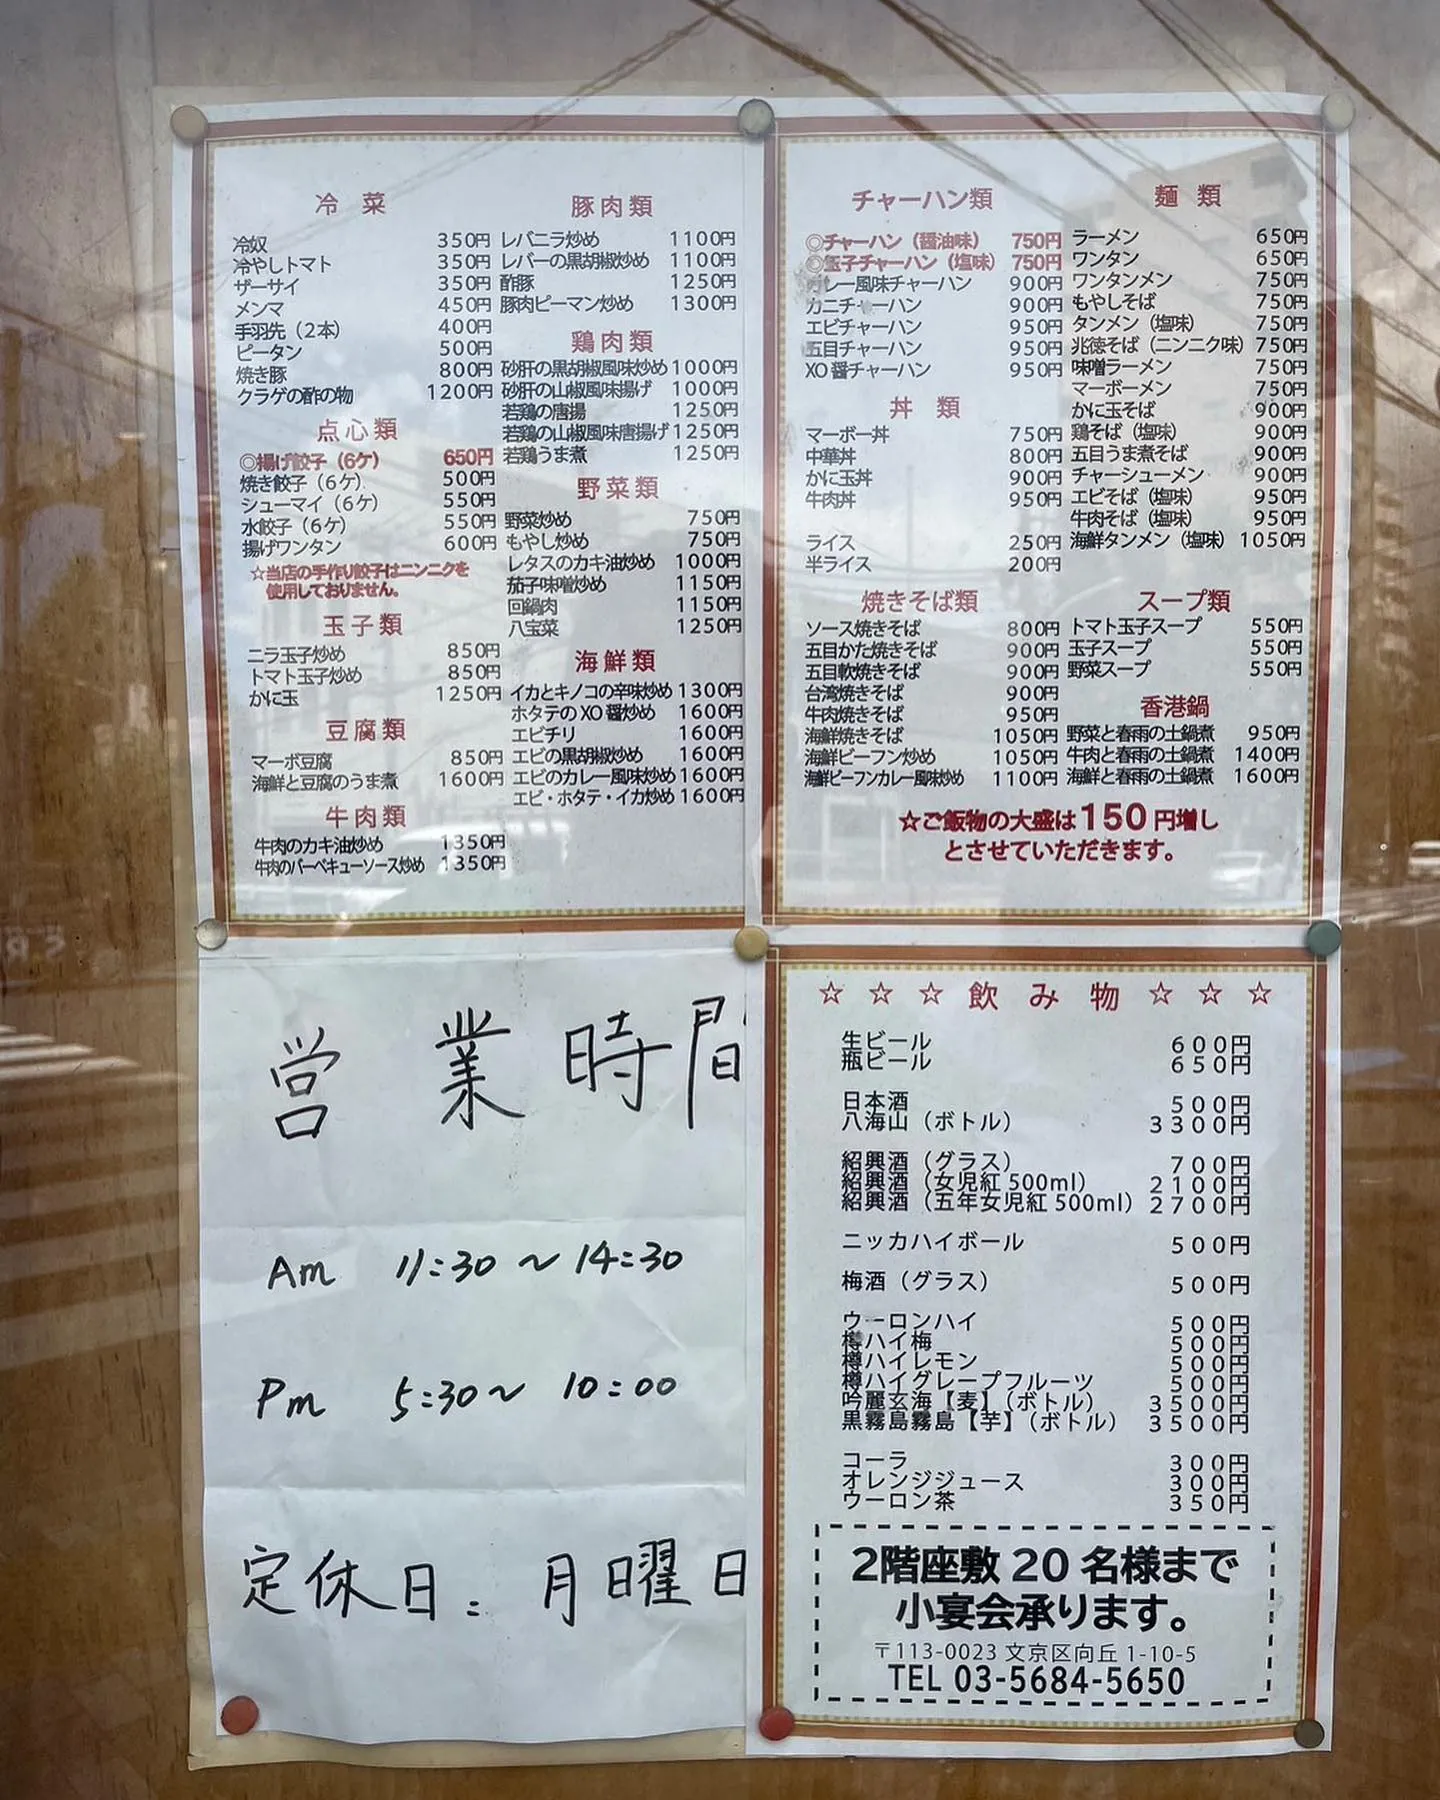 冷菜
冷奴 350円
冷やしトマト 350円
ザーサイ 350円
メンマ 450円
手羽先（2本） 400円
ピータン 500円
焼き豚 800円
クラゲの酢の物 1200円
点心類
◎揚げ餃子（6ケ） 650円
焼き餃子（6ケ） 500円
シューマイ（6ケ） 550円
水餃子（6ケ） 550円
揚げワンタン 600円
☆当店の手作り餃子はニンニクを
使用しておりません。
玉子類
ニラ玉子炒め 850円
トマト玉子炒め 850円
かに玉 1250円
豆腐類
マーボ豆腐 850円
海鮮と豆腐のうま煮 1600円
牛肉類
牛肉のカキ油炒め 1350円
牛肉のバーベキューソース炒め 1350円
豚肉類
レバニラ炒め 1100円
レバーの黒胡椒炒め 1100円
酢豚 1250円
豚肉ピーマン炒め 1300円
鶏肉類
砂肝の黒胡椒風味炒め 1000円
砂肝の山椒風味揚げ 1000円
若鶏の唐揚 1250円
若鶏の山椒風味唐揚げ 1250円
若鶏うま煮 1250円
野菜類
野菜炒め 750円
もやし炒め 750円
レタスのカキ油炒め 1000円
茄子味噌炒め 1150円
回鍋肉 1150円
八宝菜 1250円
海鮮類
イカとキノコの辛味炒め 1300円
ホタテのXO醤炒め 1600円
エビチリ 1600円
エビの黒胡椒炒め 1600円
エビのカレー風味炒め 1600円
エビ・ホタテ・イカ炒め 1600円
チャーハン類
◎チャーハン（醤油味） 750円
◎玉子チャーハン（塩味） 750円
カレー風味チャーハン 900円
カニチャーハン 900円
エビチャーハン 950円
五目チャーハン 950円
XO醤チャーハン 950円
丼類
マーボー丼 750円
中華丼 800円
かに玉丼 900円
牛肉丼 950円
ライス 250円
半ライス 200円
焼きそば類
ソース焼きそば 800円
五目かた焼きそば 900円
五目軟焼きそば 900円
台湾焼きそば 900円
牛肉焼きそば 950円
海鮮焼きそば 1050円
海鮮ビーフン炒め 1050円
海鮮ビーフンカレー風味炒め 1100円
麺類
ラーメン 650円
ワンタン 650円
ワンタンメン 750円
もやしそば 750円
タンメン（塩味） 750円
兆徳そば（ニンニク味） 750円
味噌ラーメン 750円
マーボーメン 750円
かに玉そば 900円
鶏そば（塩味） 900円
五目うま煮そば 900円
チャーシューメン 900円
エビそば（塩味） 950円
牛肉そば（塩味） 950円
海鮮タンメン（塩味） 1050円
スープ類
トマト玉子スープ 550円
玉子スープ 550円
野菜スープ 550円
香港鍋
野菜と春雨の土鍋煮 950円
牛肉と春雨の土鍋煮 1400円
海鮮と春雨の土鍋煮 1600円
☆ご飯物の大盛は150円増し
とさせていただきます。
営業時間
Am 11:30～14:30
Pm 5:30～10:00
定休日：月曜日
☆☆☆飲み物☆☆☆
生ビール 600円
瓶ビール 650円
日本酒 500円
八海山（ボトル） 3300円
紹興酒（グラス） 700円
紹興酒（女児紅500ml） 2100円
紹興酒（五年女児紅500ml） 2700円
ニッカハイボール 500円
梅酒（グラス） 500円
ウーロンハイ 500円
樽ハイ梅 500円
樽ハイレモン 500円
樽ハイグレープフルーツ 500円
吟麗玄海【麦】（ボトル） 3500円
黒霧島霧島【芋】（ボトル） 3500円
コーラ 300円
オレンジジュース 300円
ウーロン茶 350円
2階座敷20名様まで
小宴会承ります。
〒113-0023 文京区向丘1-10-5
TEL 03-5684-5650